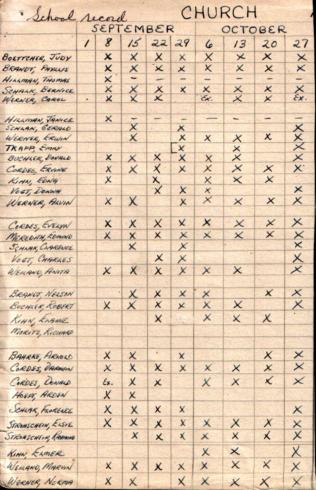 School record CHURCH
SEPTEMBER OCTOBER
1 8 15 22 29 6 13 20 27
BOETTCHER, JUDY X X X X X X X X
BRANDT, PHYLLIS X X X X X X X X
HILLMAN, THOMAS X - - - - - - -
SCHALK, BERNICE X X X X X X X X
WERNER, CAROL X X X X Ex. X X Ex.
HILLMAN, JANICE X - - -
GERALD X X X
WERNER, ERWIN X X X X X X
TRAPP, EMMY [X X X
BUCHLER, DONALD X X X X X X X
CORDES, ERVINE X X X X X X X X
KIHN, EDNA X X X X X
VOGT, DONNA X X X X
WERNER, ALVIN X X X X X X
CORDES, EVELYN X X X X X X X X
MEREDITH, EDMUND X X X X X X X X
CLARENCE X X X
VOGT, CHARLES X X X
WEILAND, ANITA X X X X X X X
BRANDT, NELSON X X X X X X
BUCHLER, ROBERT X X X X X X X
KIHN, ELAINE X X X X
MORITZ, RICHARD
BAHRKE, ARNOLD X X X X X
CORDES, X X X X X X X X
CORDES, DONALD Ex. X X X X X X
ARDEN X X
FLORENCE X X X X X
STROMSCHEIN, ELSIE X X X X X X X X
STROMSCHEIN, X X X X X X X
KIHN, ELMER X X X
WEILAND, MARVIN X X X X X X X X
WERNER, NORMA X X X X X X X